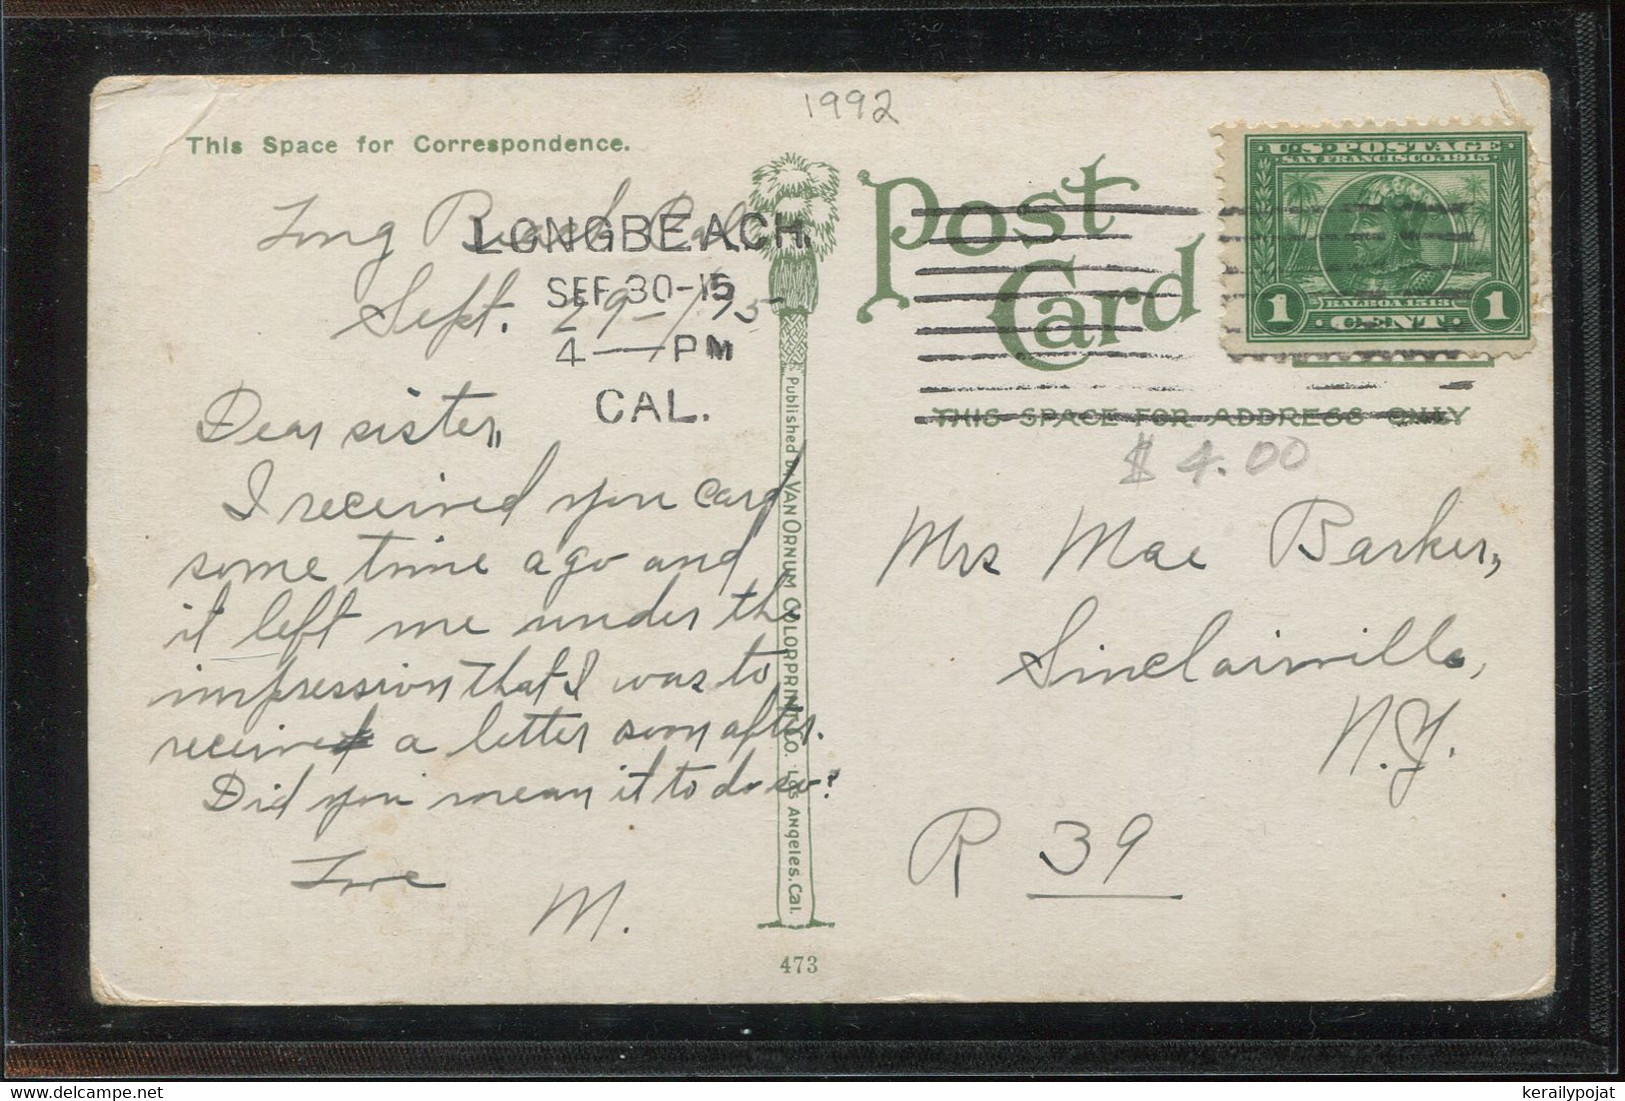 1992
This Space for Correspondence.
Long Beach Cal.
Sept. 29-1915
LONG BEACH,
SEP 30-15
4-PM
CAL.
Dear sister,,
I received you card
some time ago and
it left me under the
impression that I was to
receive a letter soon after.
Did you mean it to do so?
Love
M.
Published by VAN ORNUM COLORPRINT CO. LOS ANGELES, CAL.
473
POST CARD
U.S. POSTAGE
SAN FRANCISCO 1915
BALBOA 1513
1 CENT 1
THIS SPACE FOR ADDRESS ONLY
$4.00
Mrs Mae Barker,,
Sinclairville,
N.Y.
R 39
kerailypojat / delcampe.net